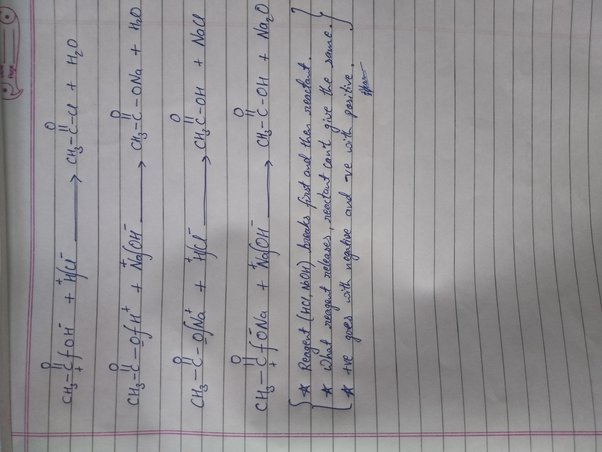 CH₃-C(=O)⁺∫OH⁻ + H⁺∫Cl⁻ ⟶ CH₃-C(=O)-Cl + H₂O
CH₃-C(=O)-O⁻∫H⁺ + Na⁺∫OH⁻ ⟶ CH₃-C(=O)-ONa + H₂O
CH₃-C(=O)-O⁻∫Na⁺ + H⁺∫Cl⁻ ⟶ CH₃C(=O)-OH + NaCl
CH₃-C(=O)⁺∫O⁻Na + Na⁺∫OH⁻ ⟶ CH₃-C(=O)-OH + Na₂O
* Reagent (HCl, NaOH) breaks first and then reactant.
* What reagent releases, reactant can't give the same.
* +ve goes with negative and -ve with positive.